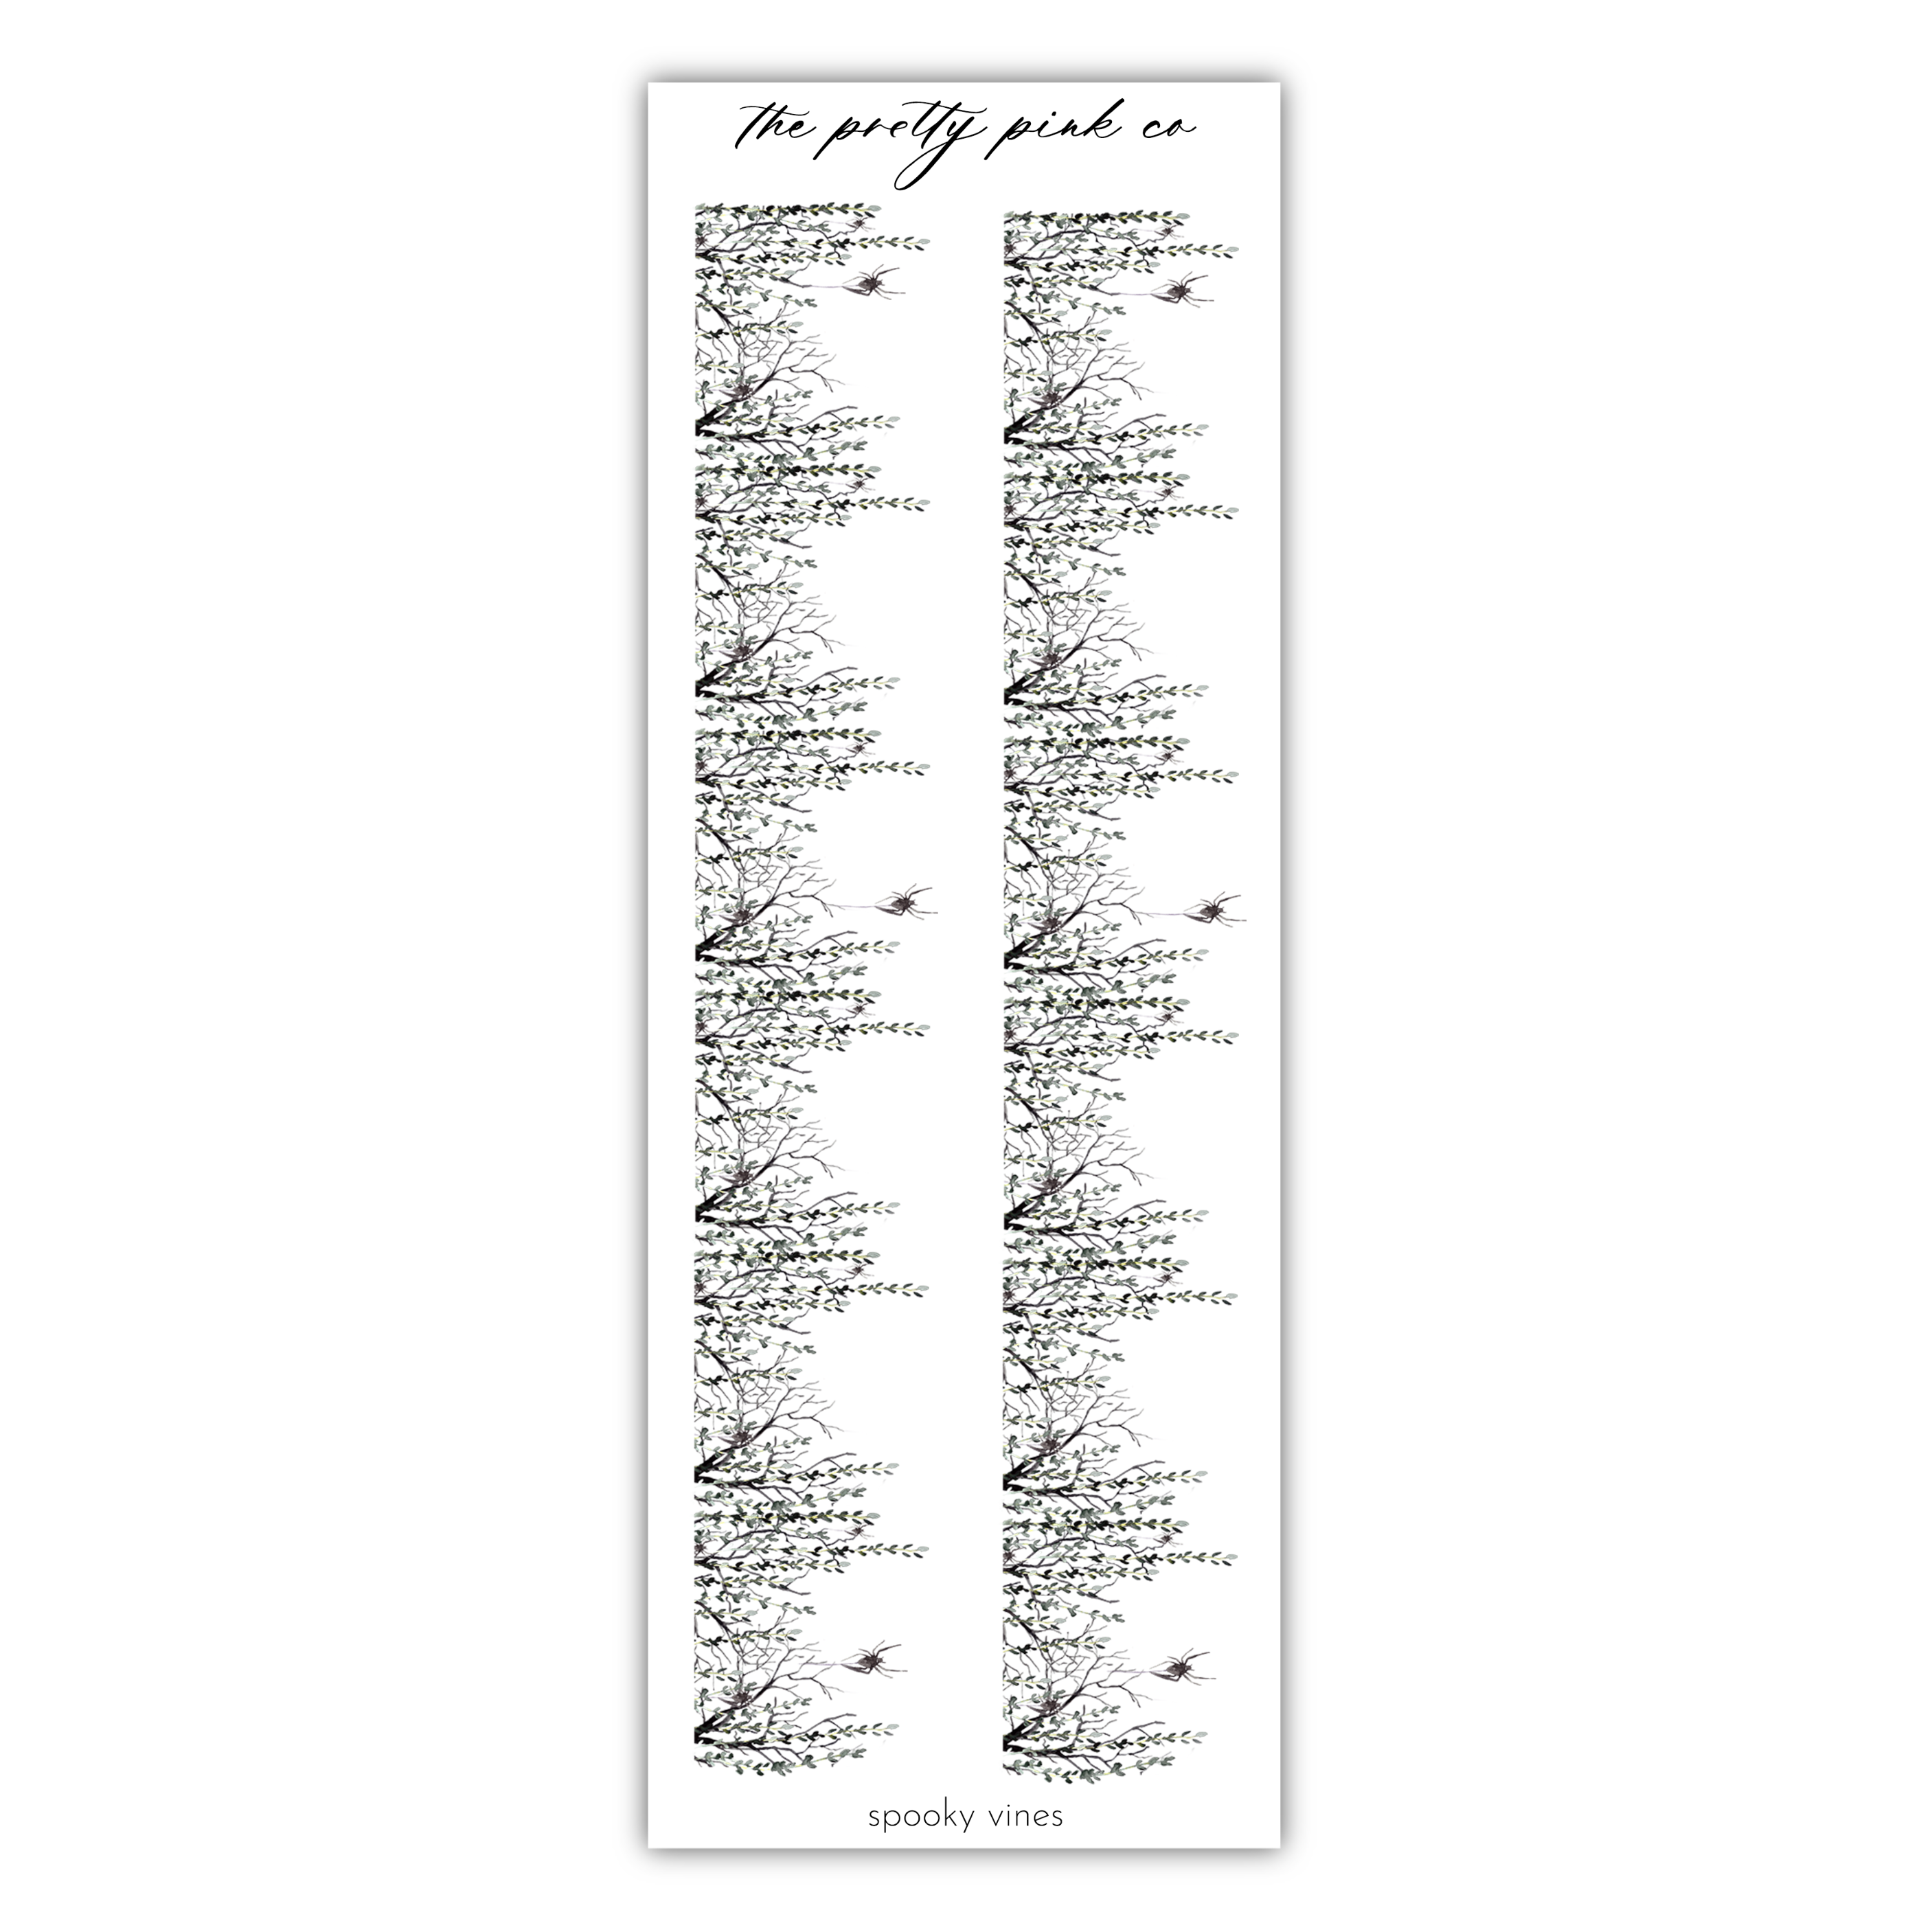 the pretty pink co
spooky vines